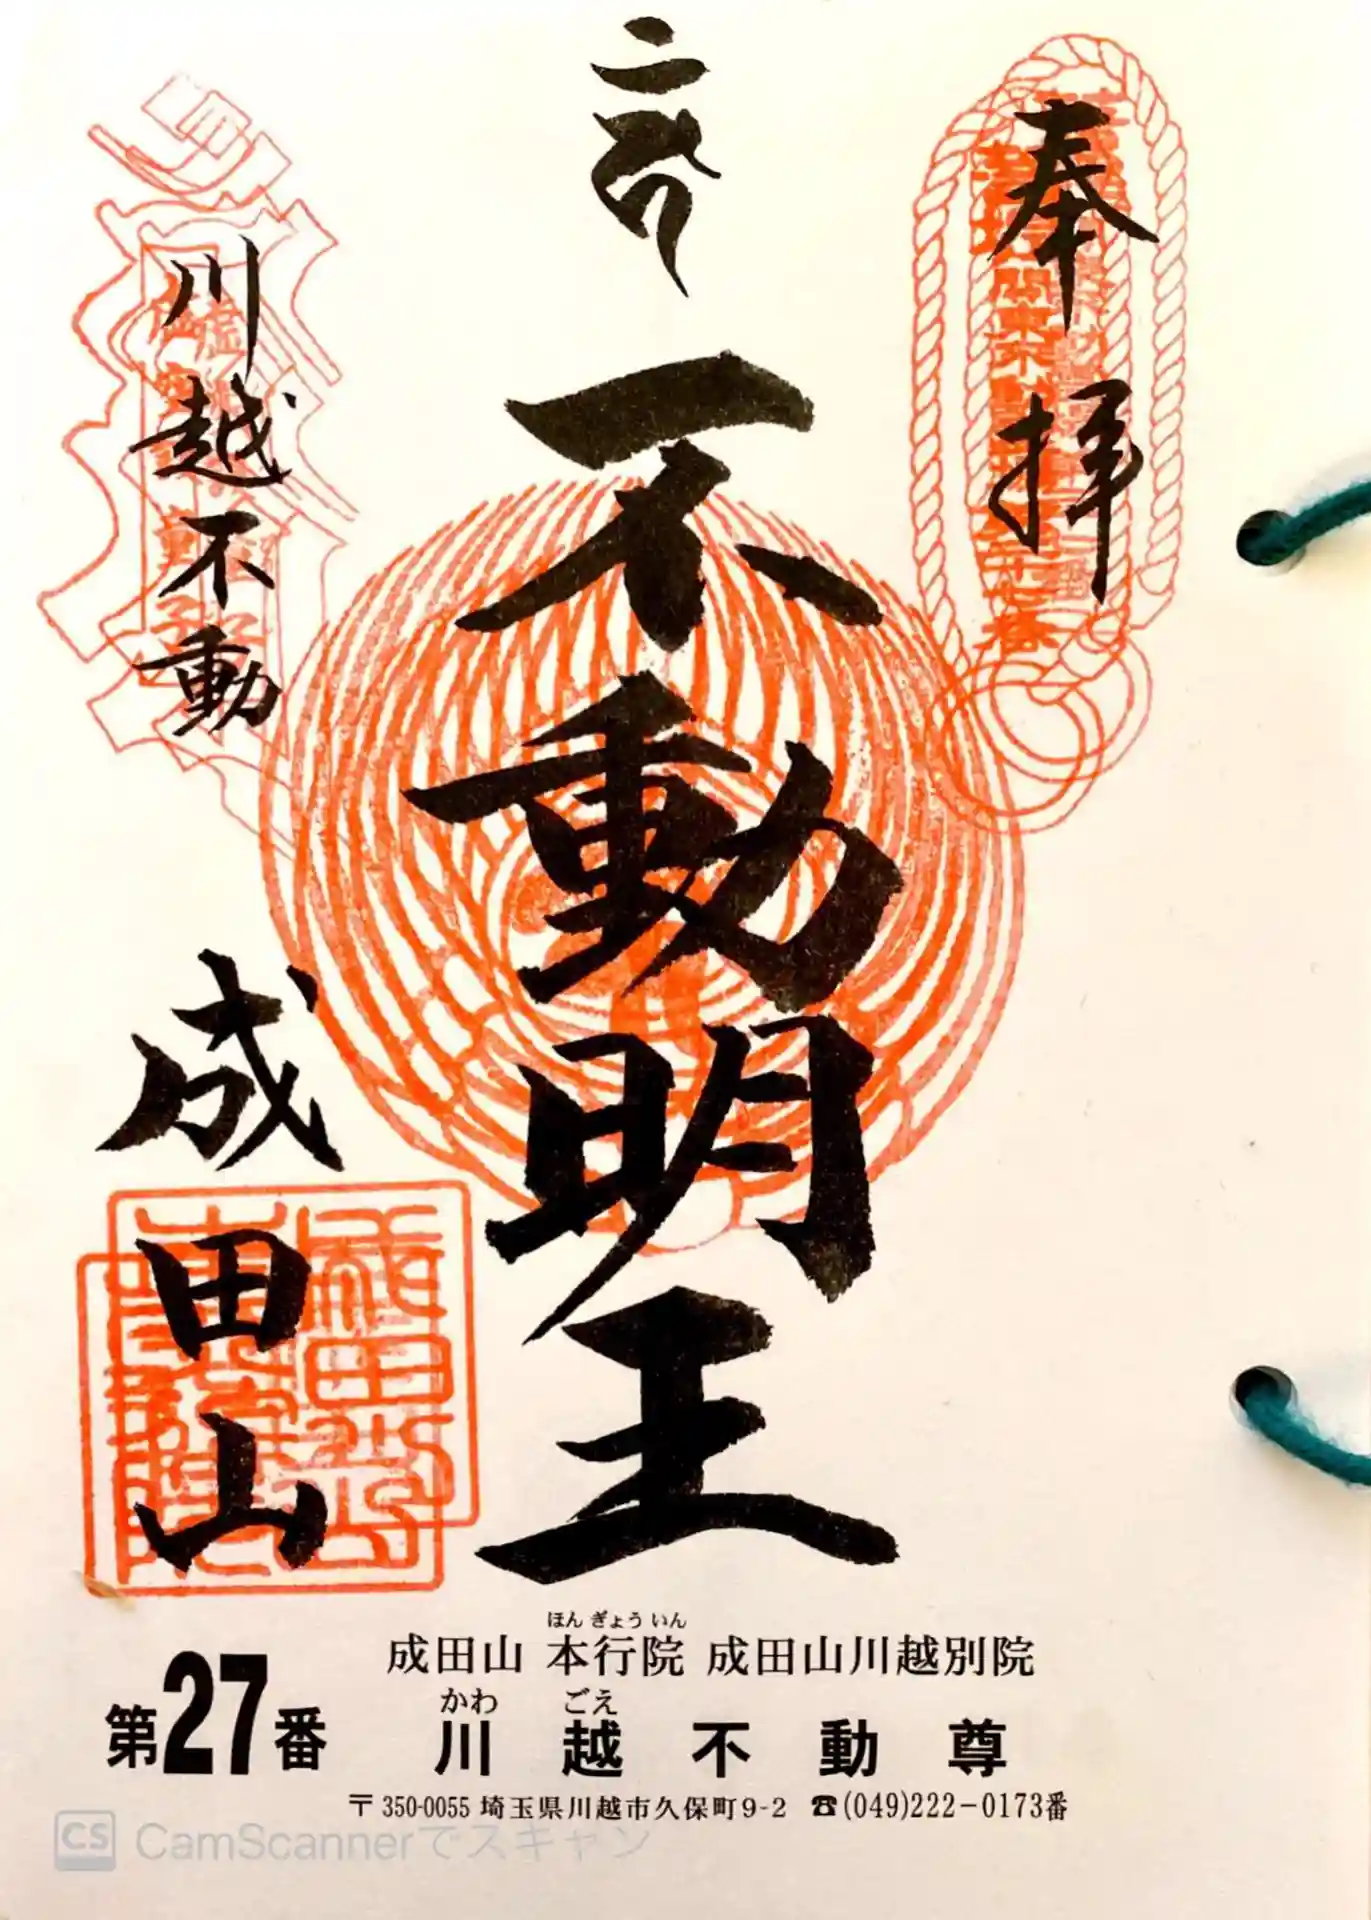 奉拝
不動明王
川越不動
成田山
ほんぎょういん
成田山 本行院 成田山川越別院
かわ ごえ
第27番 川越不動尊
〒350-0055 埼玉県川越市久保町9-2 ☎(049)222-0173番
CS CamScannerでスキャン